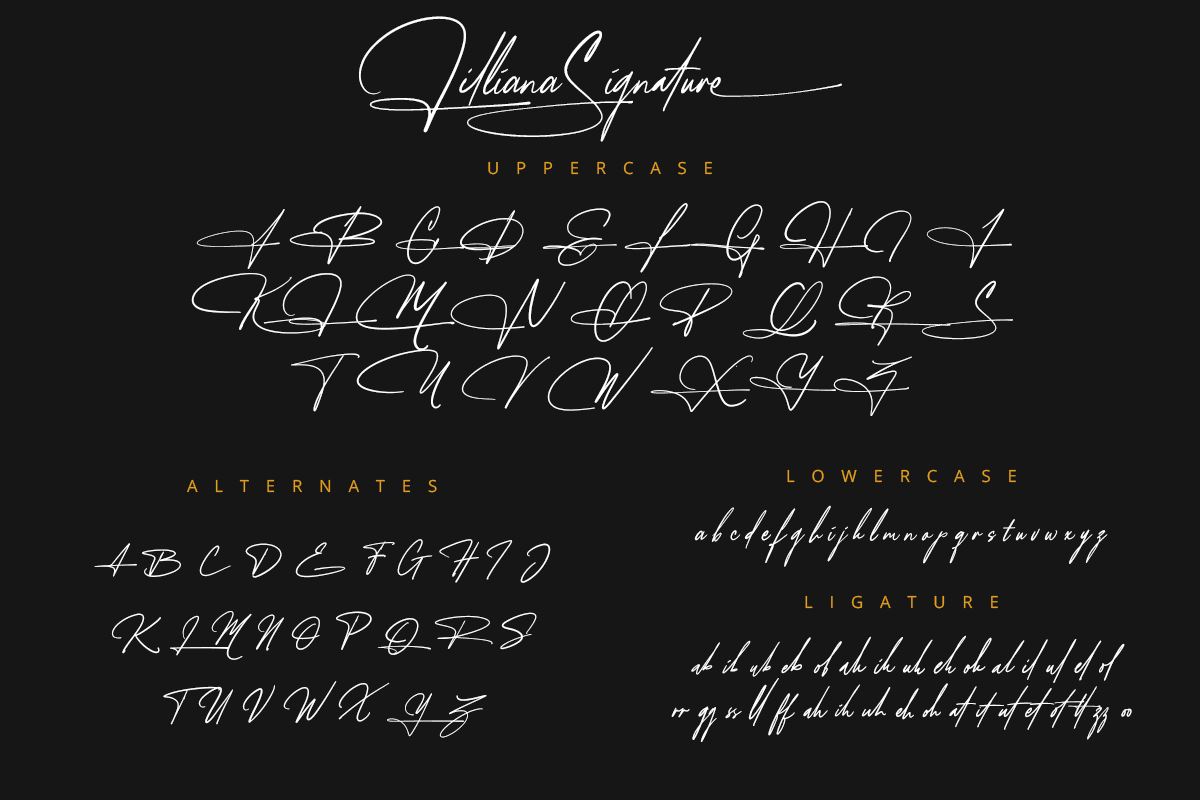 Lilliana Signature
UPPERCASE
A B C D E F G H I J
K L M N O P Q R S
T U V W X Y Z
ALTERNATES
A B C D E F G H I J
K L M N O P Q R S
T U V W X Y Z
LOWERCASE
a b c d e f g h i j k l m n o p q r s t u v w x y z
LIGATURE
ab ib ub eb ob ak ik uk ek ok al il ul el ol
rr gg ss ll ff ah ih uh eh oh at it ut et ot tt zz oo